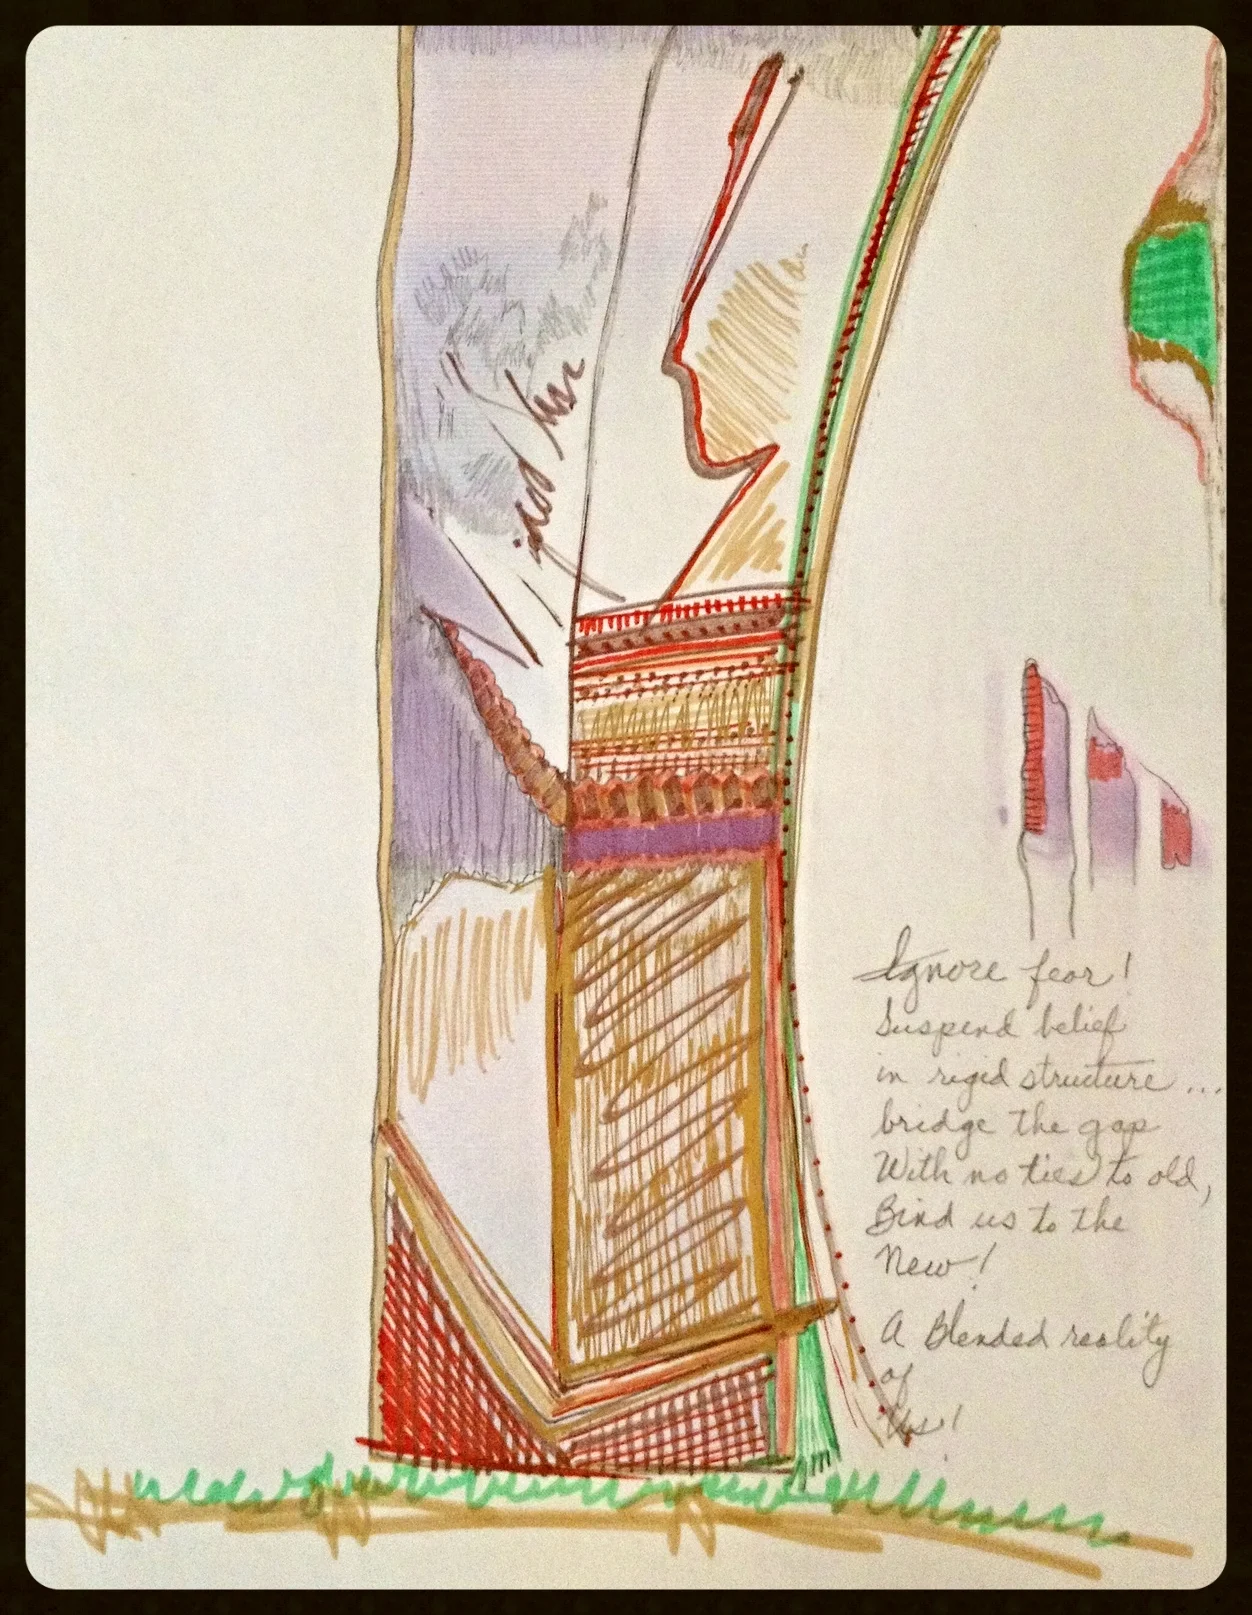 Ignore fear!
Suspend belief
in rigid structure ...
bridge the gap
With no ties to old,
Bind us to the
New!
A Blended reality
of
us!